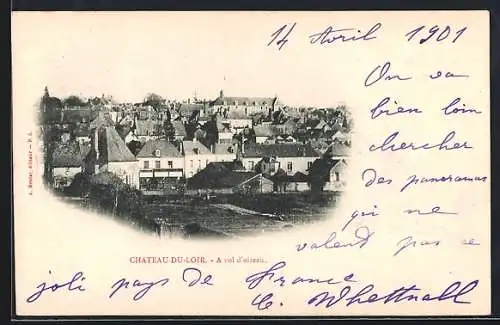 14 Avril 1901
On va
bien loin
chercher
des panoramas
qui ne
valent pas ce
joli pays de France
E. Whettnall
CHATEAU-DU-LOIR. - A vol d'oiseau.